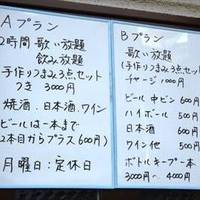 Aプラン
2時間 歌い放題
飲み放題
手作りつまみ3点セット
つき 3000円
焼酎、日本酒、ワイン
ビールは一本まで
(2本目からプラス600円)
月曜日:定休日
Bプラン
歌い放題
(手作りつまみ3点セット)
チャージ1000円
ビール 中ビン 600円
ハイボール 500円
日本酒 600円
ワイン他 500円
ボトルキープ一本
3000円〜4000円